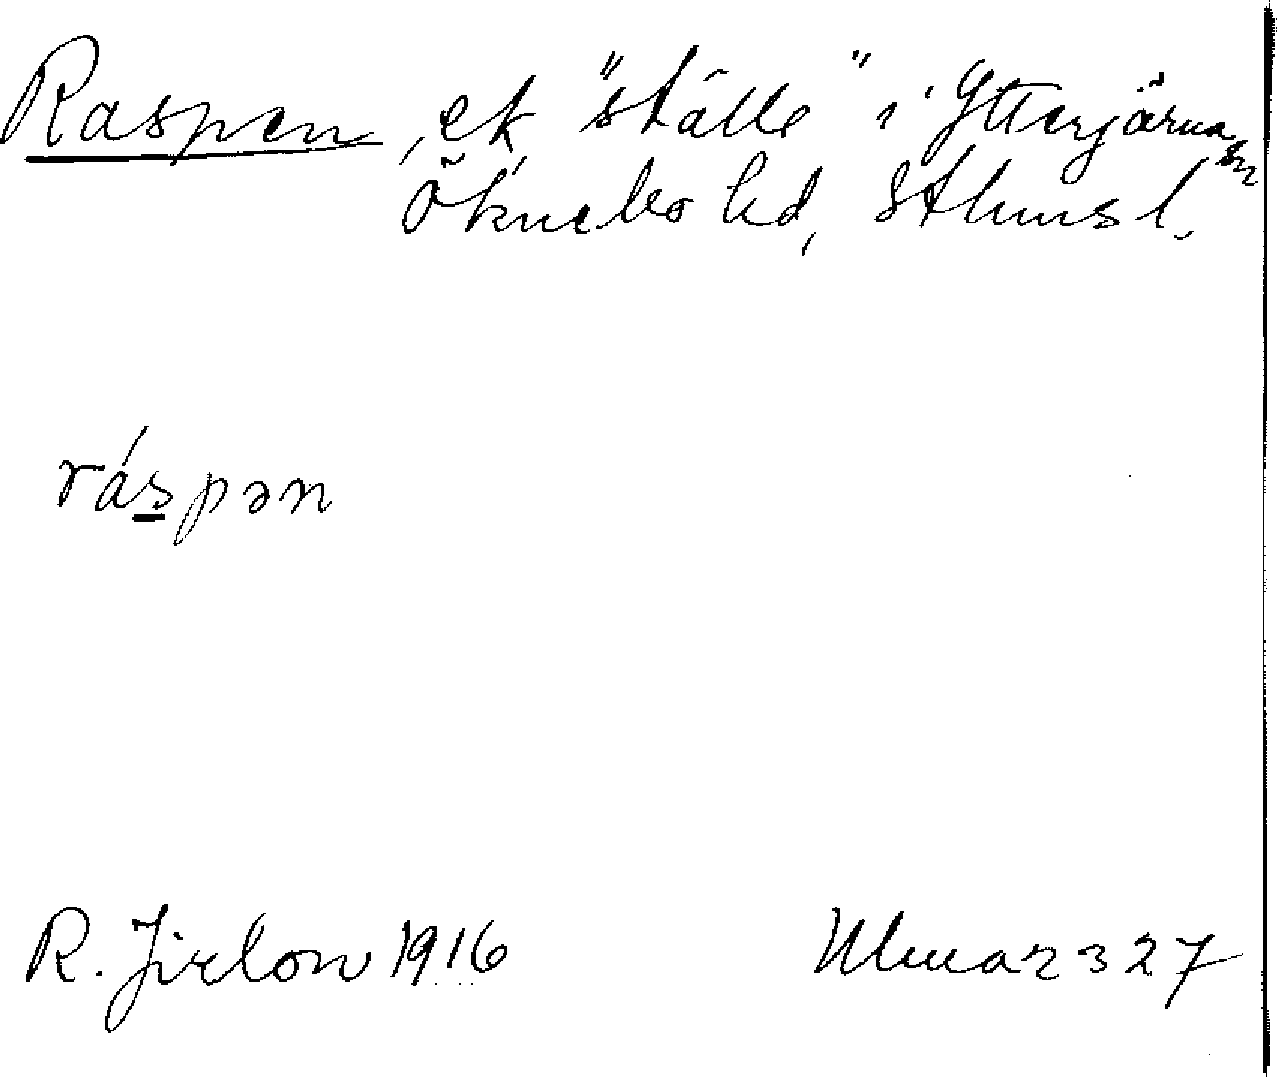 Raspen, ek "ställe" i Ytterjärna sn
Öknebo hd, Sthmsl.
ráspən
R. Jirlow 1916
Ulma 2327